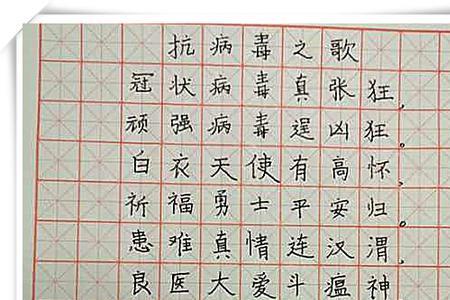 抗病毒之歌
冠状病毒真张狂,
顽强病毒逞凶狂。
白衣天使有高怀,
祈福勇士平安归。
患难真情连汉渭,
良医大爱斗瘟神